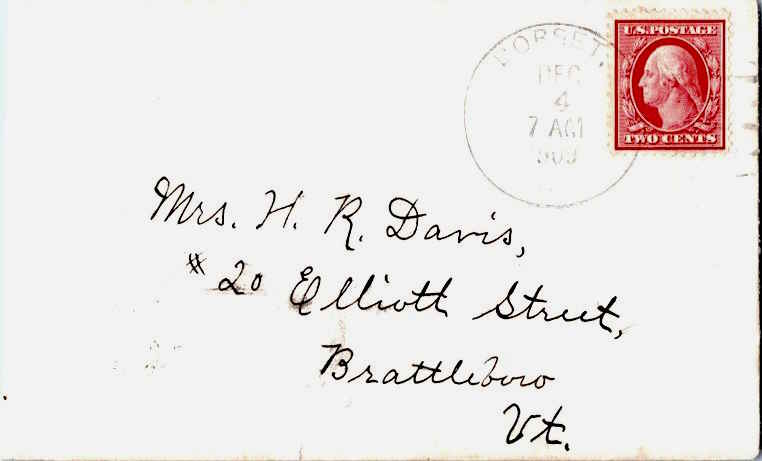 DORSET,
DEC
4
7 AM
909
U.S. POSTAGE
TWO CENTS
Mrs. H. R. Davis,
# 20 Elliott Street,
Brattleboro
Vt.